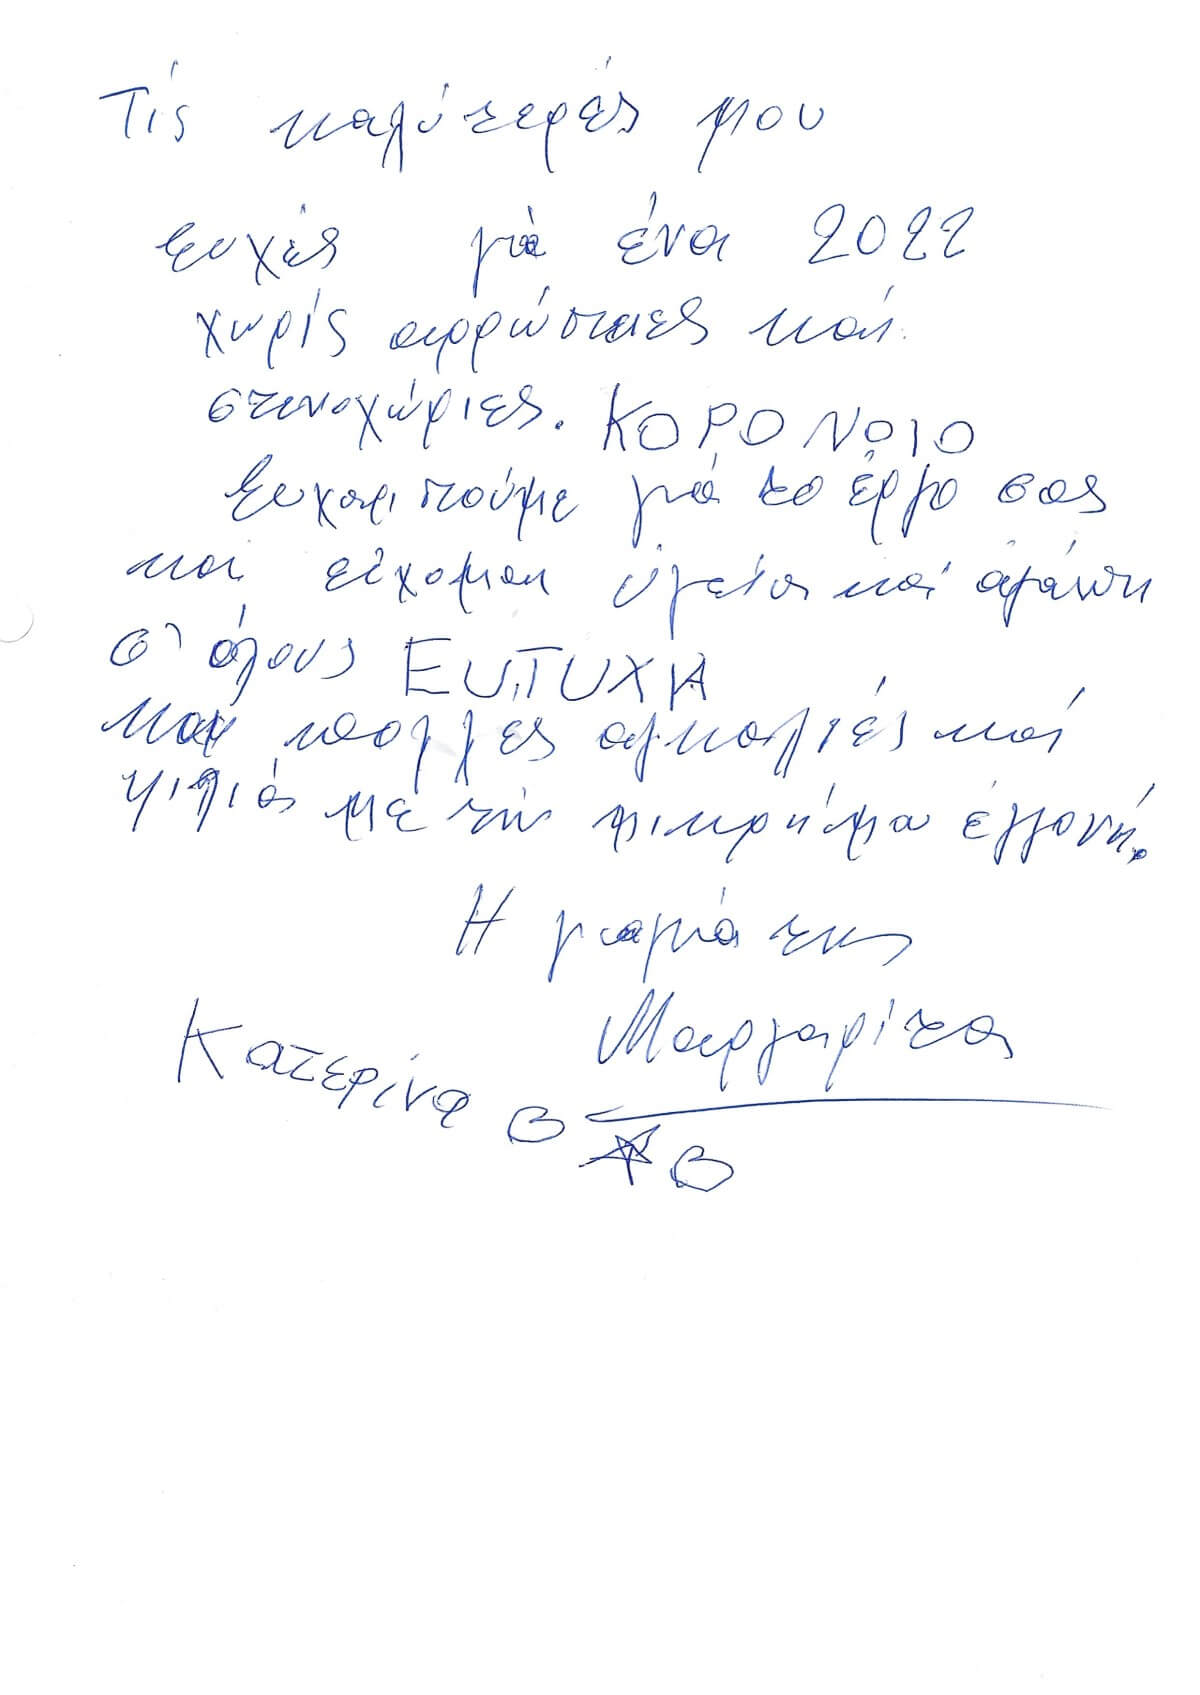 Τίς καλύτερές μου
ευχές γιά ένα 2022
χωρίς αρρώστιες καί
στενοχώριες. ΚΟΡΟΝΟΙΟ
Ευχαριστούμε γιά το έργο σας
και εύχομαι ύγεία καί αγάπη
σ' όλους ΕUTUXIA
και πολλές αγκαλιές καί
φιλιά με τήν μικρή μου έγγονή.
Η γιαγιά της
Μαργαρίτα
Κατερίνα